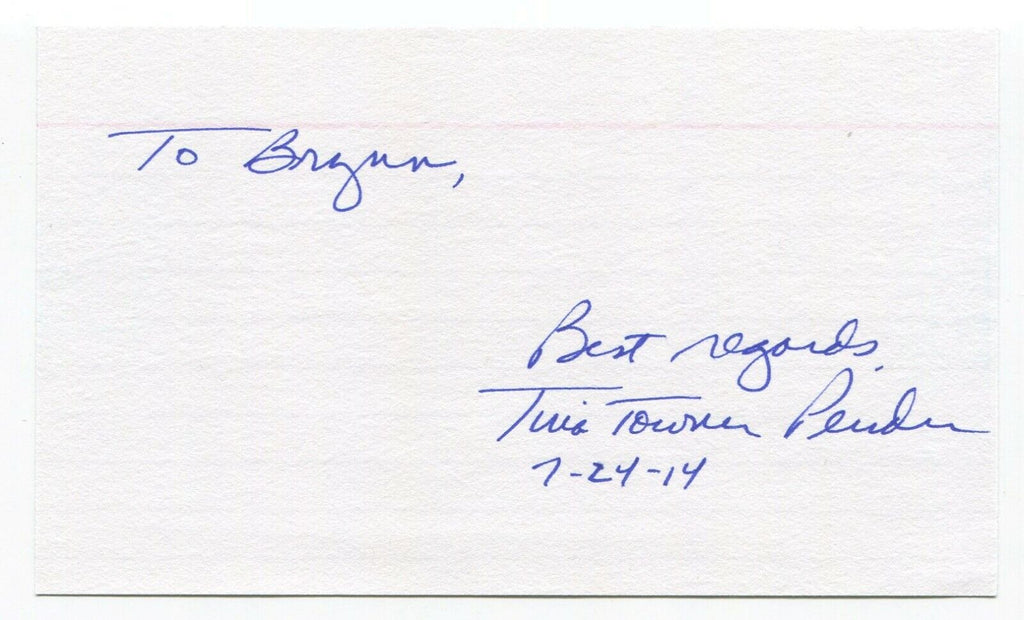 To Brynn,
Best regards,
Tina Towner Pender
7-24-14